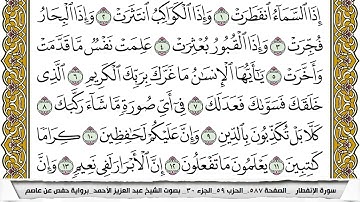 إِذَا ٱلسَّمَآءُ ٱنفَطَرَتْ ١ وَإِذَا ٱلْكَوَاكِبُ ٱنتَثَرَتْ ٢ وَإِذَا ٱلْبِحَارُ
فُجِّرَتْ ٣ وَإِذَا ٱلْقُبُورُ بُعْثِرَتْ ٤ عَلِمَتْ نَفْسٌ مَّا قَدَّمَتْ
وَأَخَّرَتْ ٥ يَٰٓأَيُّهَا ٱلْإِنسَٰنُ مَا غَرَّكَ بِرَبِّكَ ٱلْكَرِيمِ ٦ ٱلَّذِى
خَلَقَكَ فَسَوَّىٰكَ فَعَدَلَكَ ٧ فِىٓ أَىِّ صُورَةٍ مَّا شَآءَ رَكَّبَكَ ٨
كَلَّا بَلْ تُكَذِّبُونَ بِٱلدِّينِ ٩ وَإِنَّ عَلَيْكُمْ لَحَٰفِظِينَ ١٠ كِرَامًا
كَٰتِبِينَ ١١ يَعْلَمُونَ مَا تَفْعَلُونَ ١٢ إِنَّ ٱلْأَبْرَارَ لَفِى نَعِيمٍ ١٣ وَإِنَّ
سورة الإنفطار . الصفحة ٥٨٧ . الحزب ٥٩ . الجزء ٣٠ . بصوت الشيخ عبد العزيز الأحمد . برواية حفص عن عاصم